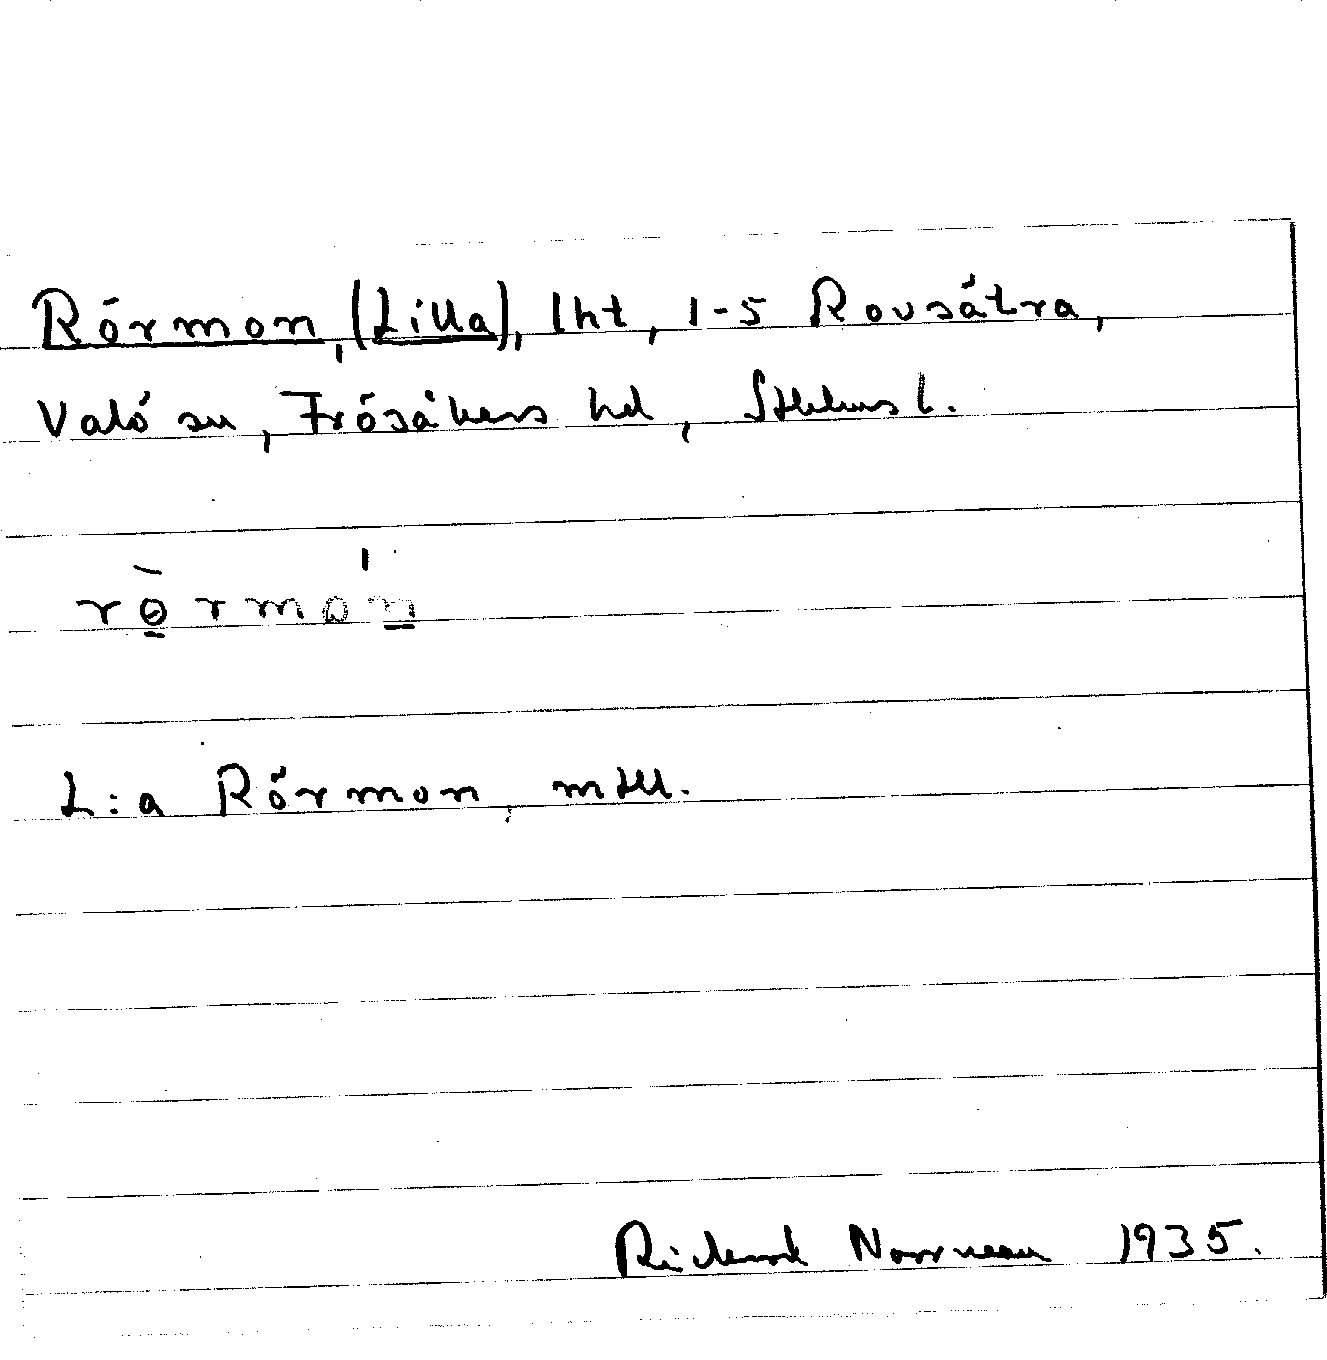 Rörmon, (Lilla), lht, 1-5 Rovsätra,
Valö sn, Frösåkers hd, Sthlms l.
rörmon
L:a Rörmon, mtll.
Rickard Norrman 1935.